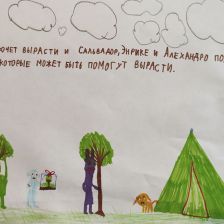 ХОЧЕТ ВЫРАСТИ И САЛЬВАДОР, ЭНРИКЕ И АЛЕХАНДРО ПО
КОТОРЫЕ МОЖЕТ БЫТЬ ПОМОГУТ ВЫРАСТИ.